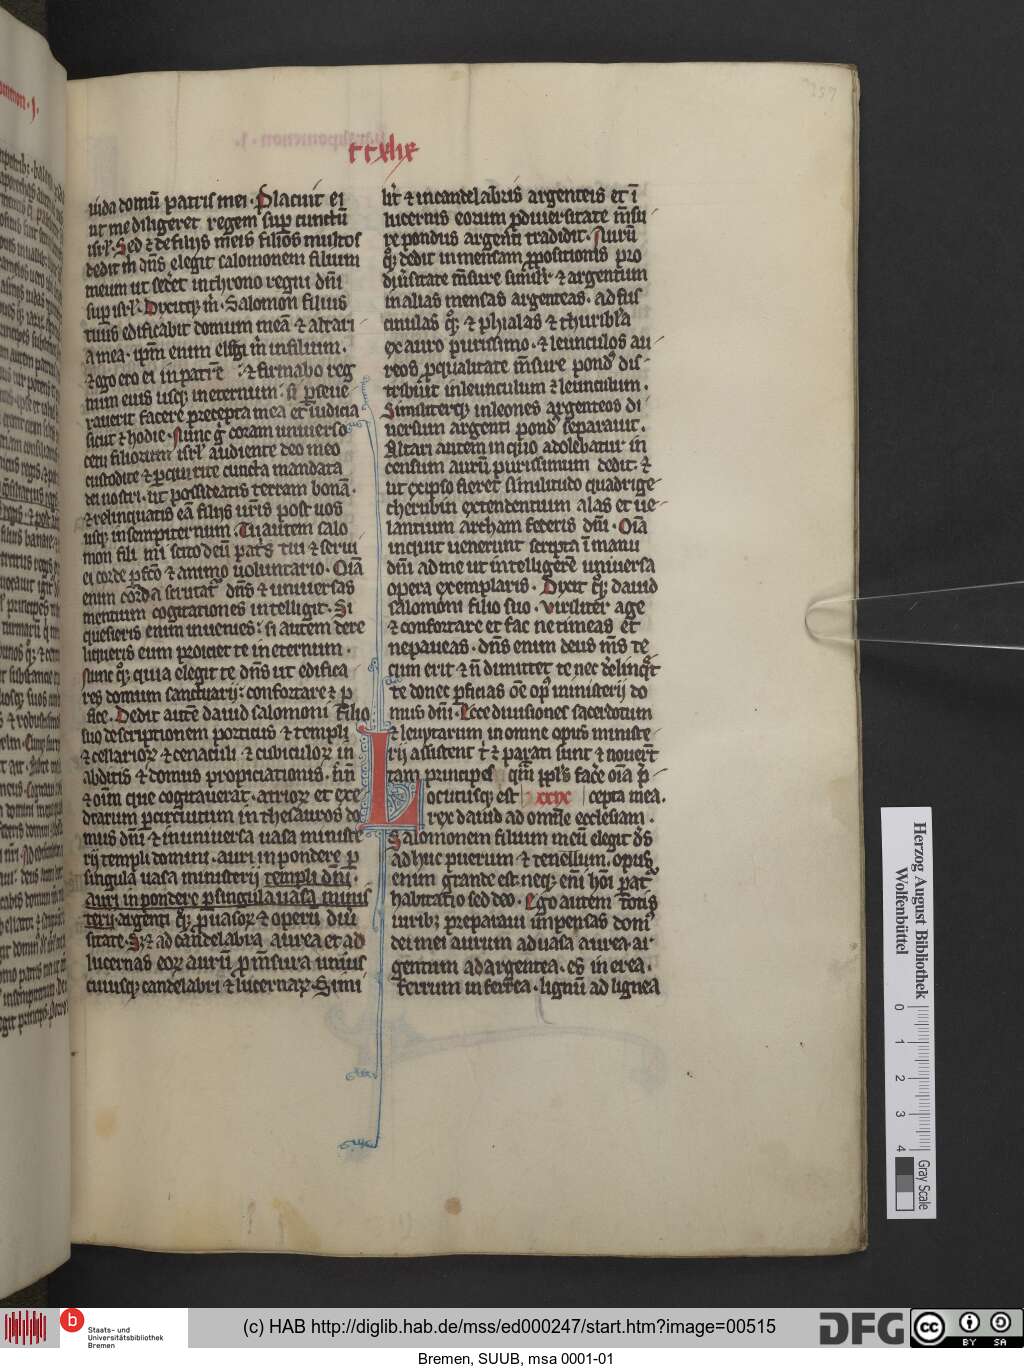 ccxlix
iuda domū patris mei · Placuit ei
ut me diligeret regem sup cunctū
isrl · Sed ⁊ de filijs meis filios multos
dedit m̄ dn̄s elegit salomonem filium
meum ut sedēt in throno regni dn̄i
sup isrl · Dixitq; m̄ · Salomon filius
tuus edificabit domum meā ⁊ altari
a mea · ip̄m enim elegi m̄ in filium ·
⁊ ego ero ei in patrē : ⁊ firmabo reg
num eius usq; in eternum · si p̄seue
rauerit facere precepta mea et iudicia
sicut ⁊ hodie · Nunc ḡ coram uniuerso
cetu filiorum isrl audiente deo meo
custodite ⁊ perquirite cuncta mandata
dei nostri · ut possideatis terram bonā ·
⁊ relinquatis eā filijs ur̄is post uos
usq; in sempiternum · Tu autem salo
mon fili mi scito deū pat̄s tui ⁊ serui
ei corde p̄fc̄o ⁊ animo uoluntario · Oīa
enim corda scrutat̄ dn̄s ⁊ uniuersas
mentium cogitationes intelligit · Si
quesieris eum inuenies : si autem dere
liqueris eum proiciet te in eternum ·
Nunc q̄; quia elegit te dn̄s ut edifica
res domum sanctuarij : confortare ⁊ p
fice · Dedit autē dauid salomoni filio
suo descriptionem porticus ⁊ templi
⁊ cellarioꝝ ⁊ cenaculi · ⁊ cubiculoꝝ in
abditis ⁊ domus propiciationis · n̄n̄
⁊ oīm que cogitauerat · atrioꝝ et exe
drarum p circuitum in thesauros do
mus dn̄i ⁊ in uniuersa uasa ministe
rij templi domini · auri in pondere p
singula uasa ministerij templi dn̄i ·
auri in pondere p singula uasa minis
terij · argenti q̄; p uasoꝝ ⁊ operū diū
sitate · S; ⁊ ad candelabra aurea et ad
lucernas eoꝝ aurū p m̄sura unius
cuiusq; candelabri ⁊ lucernaꝝ · Simi
lit̄ ⁊ in candelabris argenteis et ī
lucernis eorum p diuersitate m̄su
re pondus argenti tradidit · Aurū
q̄; dedit in mensam p̄positionis pro
diūsitate m̄sure similit̄ ⁊ argentum
in alias mensas argenteas · ad fus
cinulas q̄; ⁊ phialas ⁊ thuribla
ex auro purissimo · ⁊ leunculos au
reos p qualitate m̄sure pond' dis
tribuit in leunculum ⁊ leunculum ·
Similiterq; in leones argenteos di
uersum argenti pond' separauit ·
Altari autem in quo adolebatur in
censum aurū purissimum dedit · ⁊
ut ex ipso fieret similitudo quadrige
cherubin extendentium alas et ue
lantium archam federis dn̄i · Oīa
inquit uenerunt scripta ī manu
dn̄i ad me ut intelligerē uniuersa
opera exemplaris · Dixit q̄; dauid
salomoni filio suo · Viriliter age
⁊ confortare et fac ne timeas et
ne paueas · dn̄s enim deus m̄s te
cum erit ⁊ n̄ dimittet te nec derelinq̄t
te donec p̄ficias oē op' ministerij do
mus dn̄i · Ecce diuisiones sacerdotum
⁊ leuytarum in omne opus ministe
rij assistent t̄ ⁊ parati sunt ⁊ nouer̄t
tam principes qm̄ ppl̄s facē oīa p̄
cepta mea.
xxix
Locutusq; est
rex dauid ad omnē ecclesiam ·
Salomonem filium meū elegit d̄s
adhuc puerum ⁊ tenellum. opus
enim grande est · neq; eñi hōi pat̄
habitatio sed deo · Ego autem totis
uirib; preparaui impensas dom'
dei mei aurum ad uasa aurea · ar
gentum ad argentea · es in erea ·
ferrum in ferrea · lignū ad lignea
Herzog August Bibliothek
Wolfenbüttel
0 1 2 3 4
Gray Scale
b
Staats- und
Universitätsbibliothek
Bremen
(c) HAB http://diglib.hab.de/mss/ed000247/start.htm?image=00515
DFG
cc BY SA
Bremen, SUUB, msa 0001-01